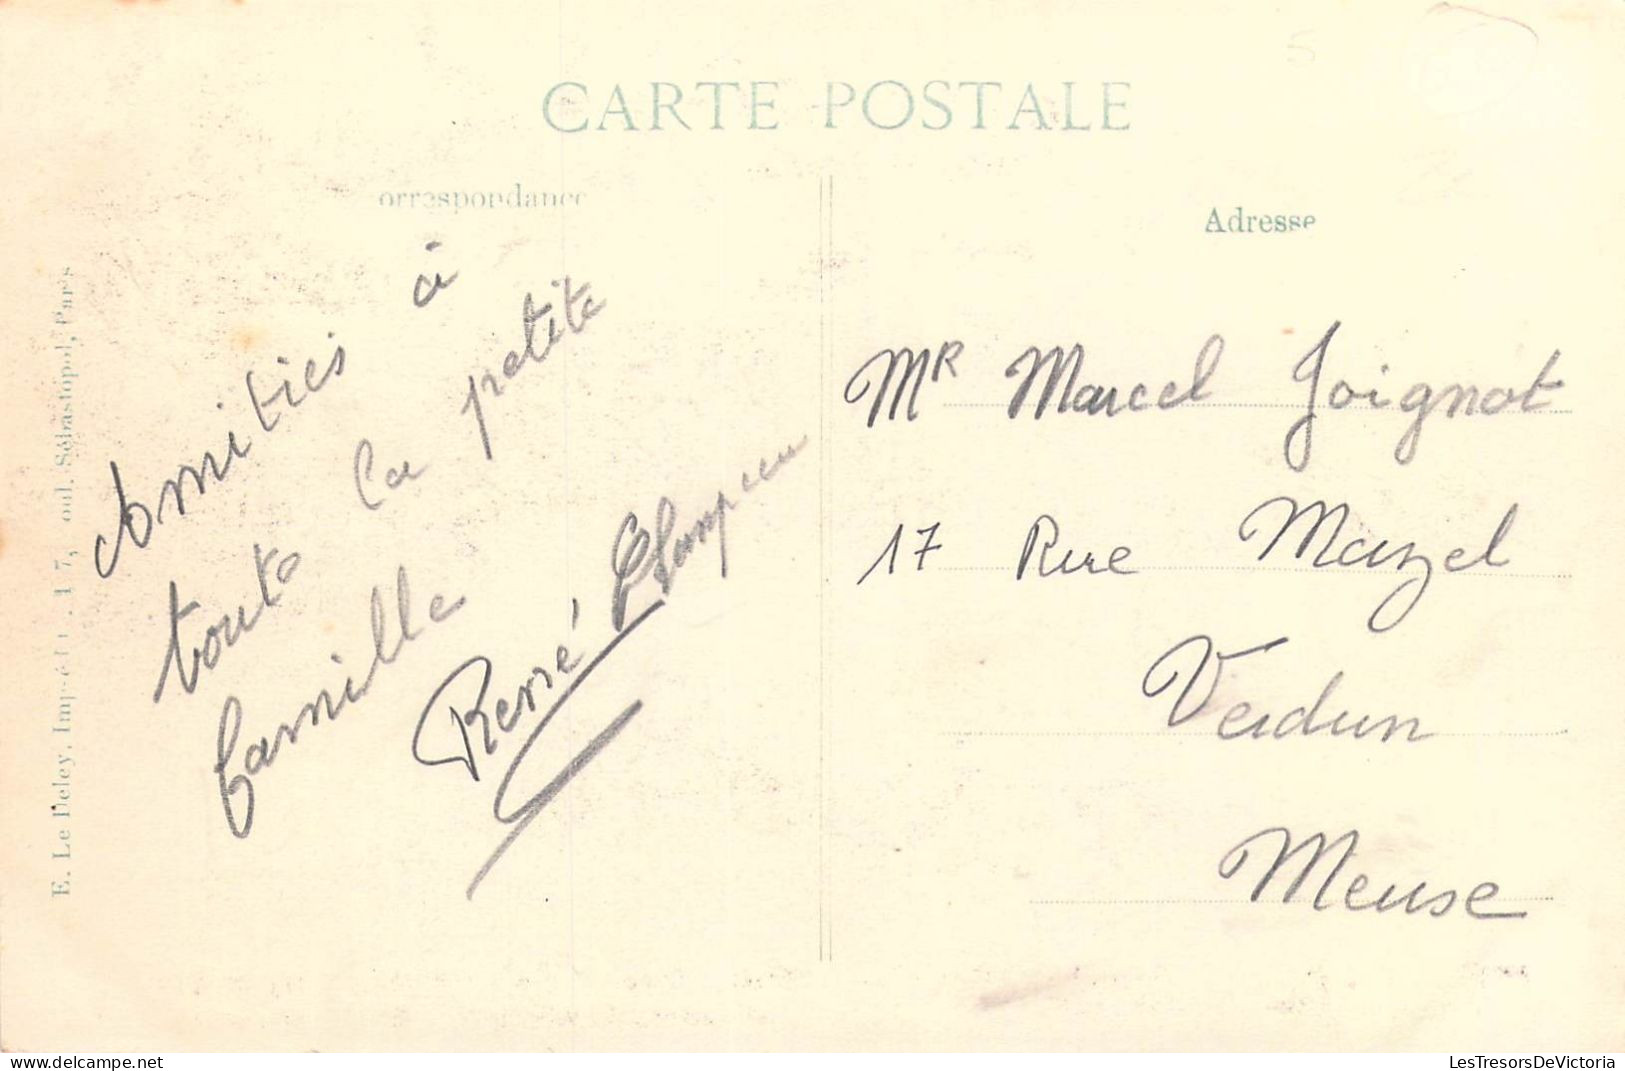 CARTE POSTALE
orrespondance
Adresse
Amitiés à
toute la petite
famille
René
Mr Marcel Joignot
17 Rue Mazel
Verdun
Meuse
E. Le Deley, Imp
117, oul. Sébastopol, Paris
www.delcampe.net
LesTresorsDeVictoria